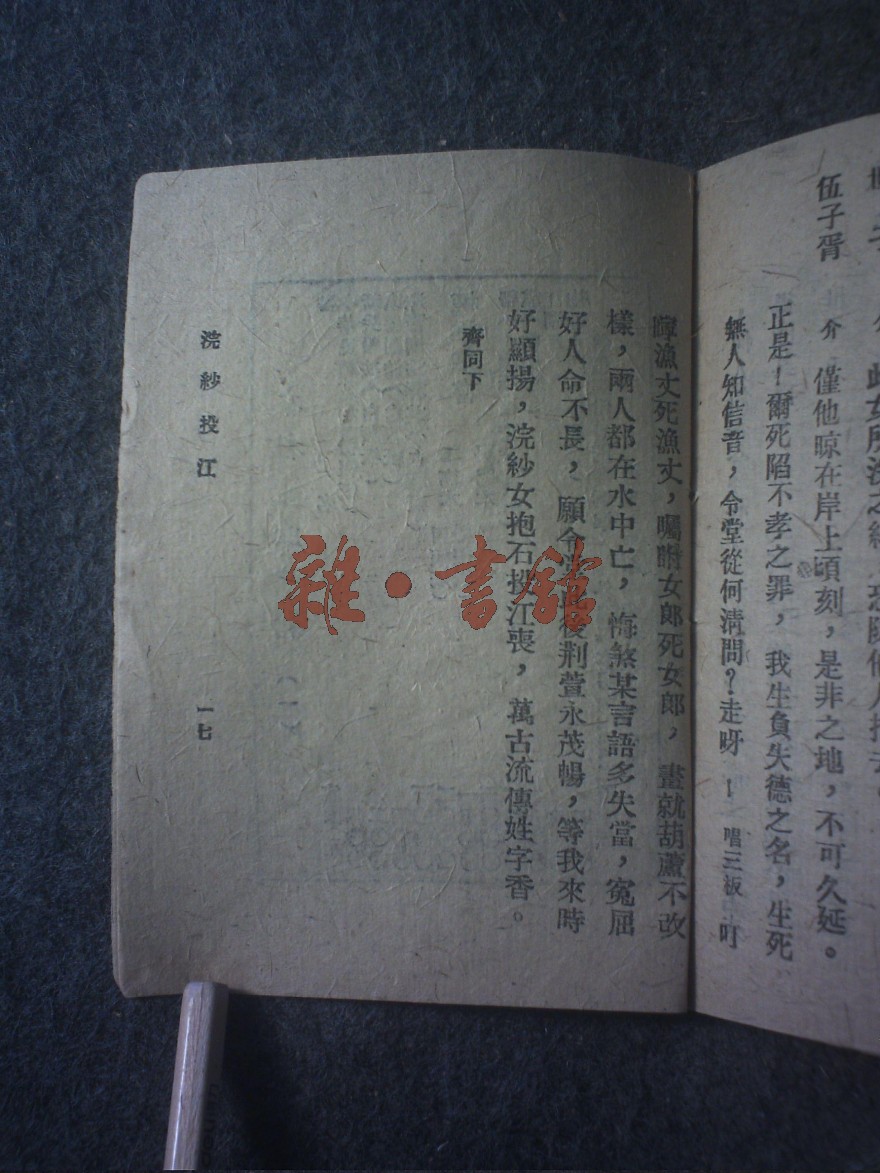 此女所
伍子胥
介 僅他晾在岸上頃刻，是非之地，不可久延。
正是！爾死陷不孝之罪，我生負失德之名，生死
無人知信音，令堂從何清問？走呀 ！ 唱三板 叮
漁丈死漁丈，囑咐女郎死女郎，畫就葫蘆不改
樣，兩人都在水中亡，悔煞某言語多失當，寃屈
好人命不長，願令 後荆萱永茂暢，等我來時
好顯揚，浣紗女抱石投江喪，萬古流傳姓字香。
齊同下
浣紗投江
一七
雜·書舘